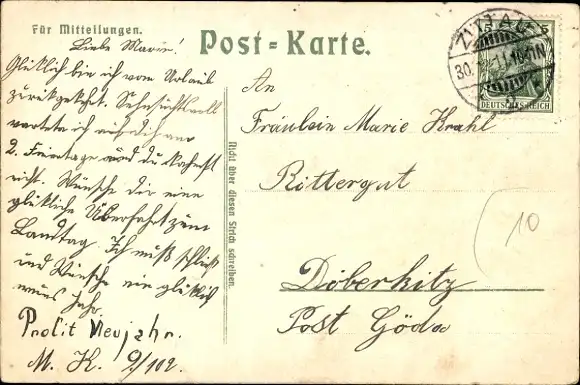 Für Mitteilungen.
Post-Karte.
Liebe Marie!
Glücklich bin ich vom Urlaub
zurückgekehrt. Sehnsuchtvoll
wartete ich auf dich am
2. Feiertage und du kahmst
nicht. Wünsche dir eine
glückliche Überfahrt zum
Landtag. Ich muß schließ
und Wünsche ein glücklich
neues Jahr.
Prosit Neujahr.
M. K. 9/102.
Nicht über diesen Strich schreiben.
ZITTAU
30.
DEUTSCHES REICH
An
Fräulein Marie Krahl
Rittergut
Döberkitz
Post Göda
10